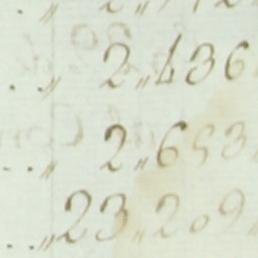 ..„ 2„436
..„ 2„653
..„ 23„209